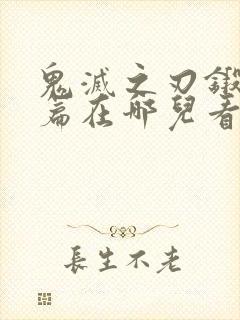 鬼滅之刃鍛
篇在哪兒看
長生不老